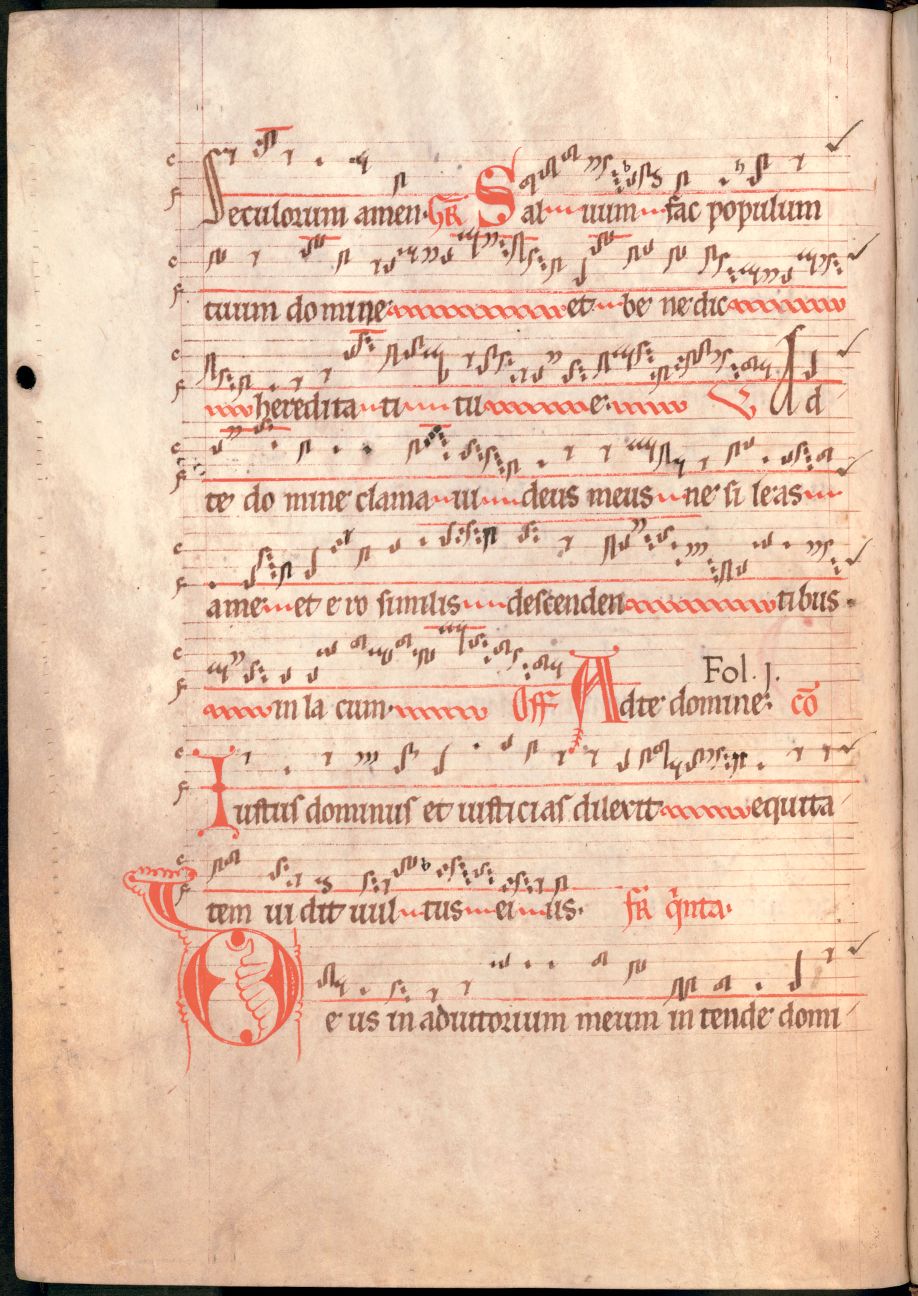 Seculorum amen. GR Saluum fac populum
tuum domine et benedic
hereditati tue. V Ad
te domine clamaui deus meus ne sileas
a me et ero similis descendentibus
in lacum. Off Ad te domine. Fol. j. cō
Iustus dominus et iusticias dilexit equita
tem uidit uultus eius. fR qinta.
Deus in adiutorium meum intende domi